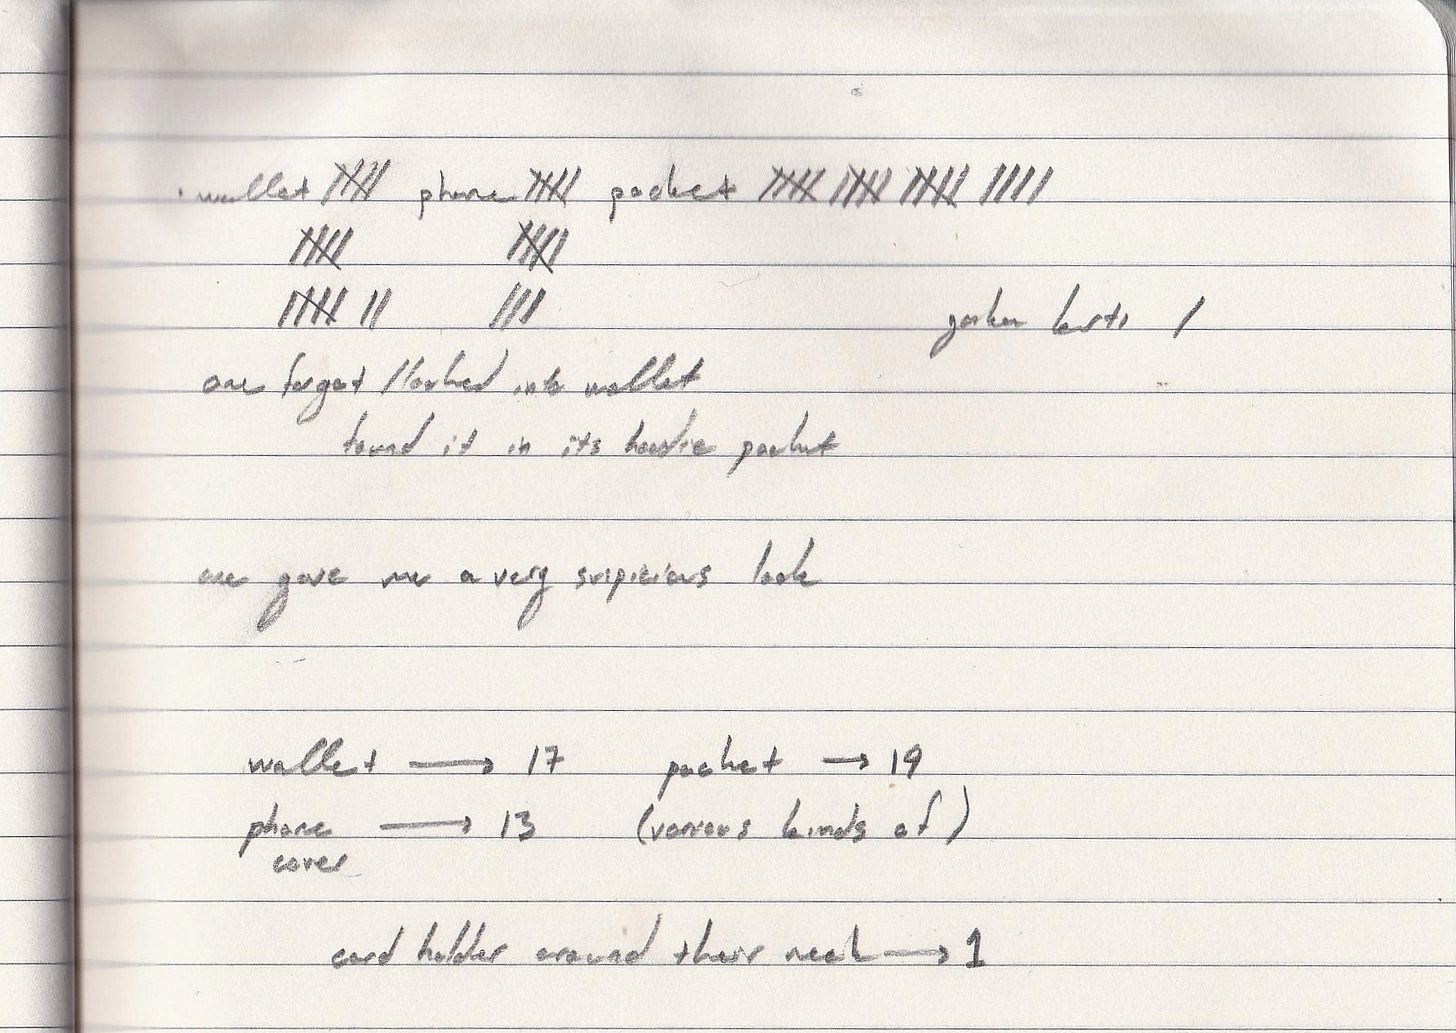 wallet phone pocket
one forgot / looked into wallet
found it in its hoodie pocket
one gave me a very suspicious look
wallet → 17 pocket → 19
phone → 13 (various kinds of)
cover
card holder around their neck → 1